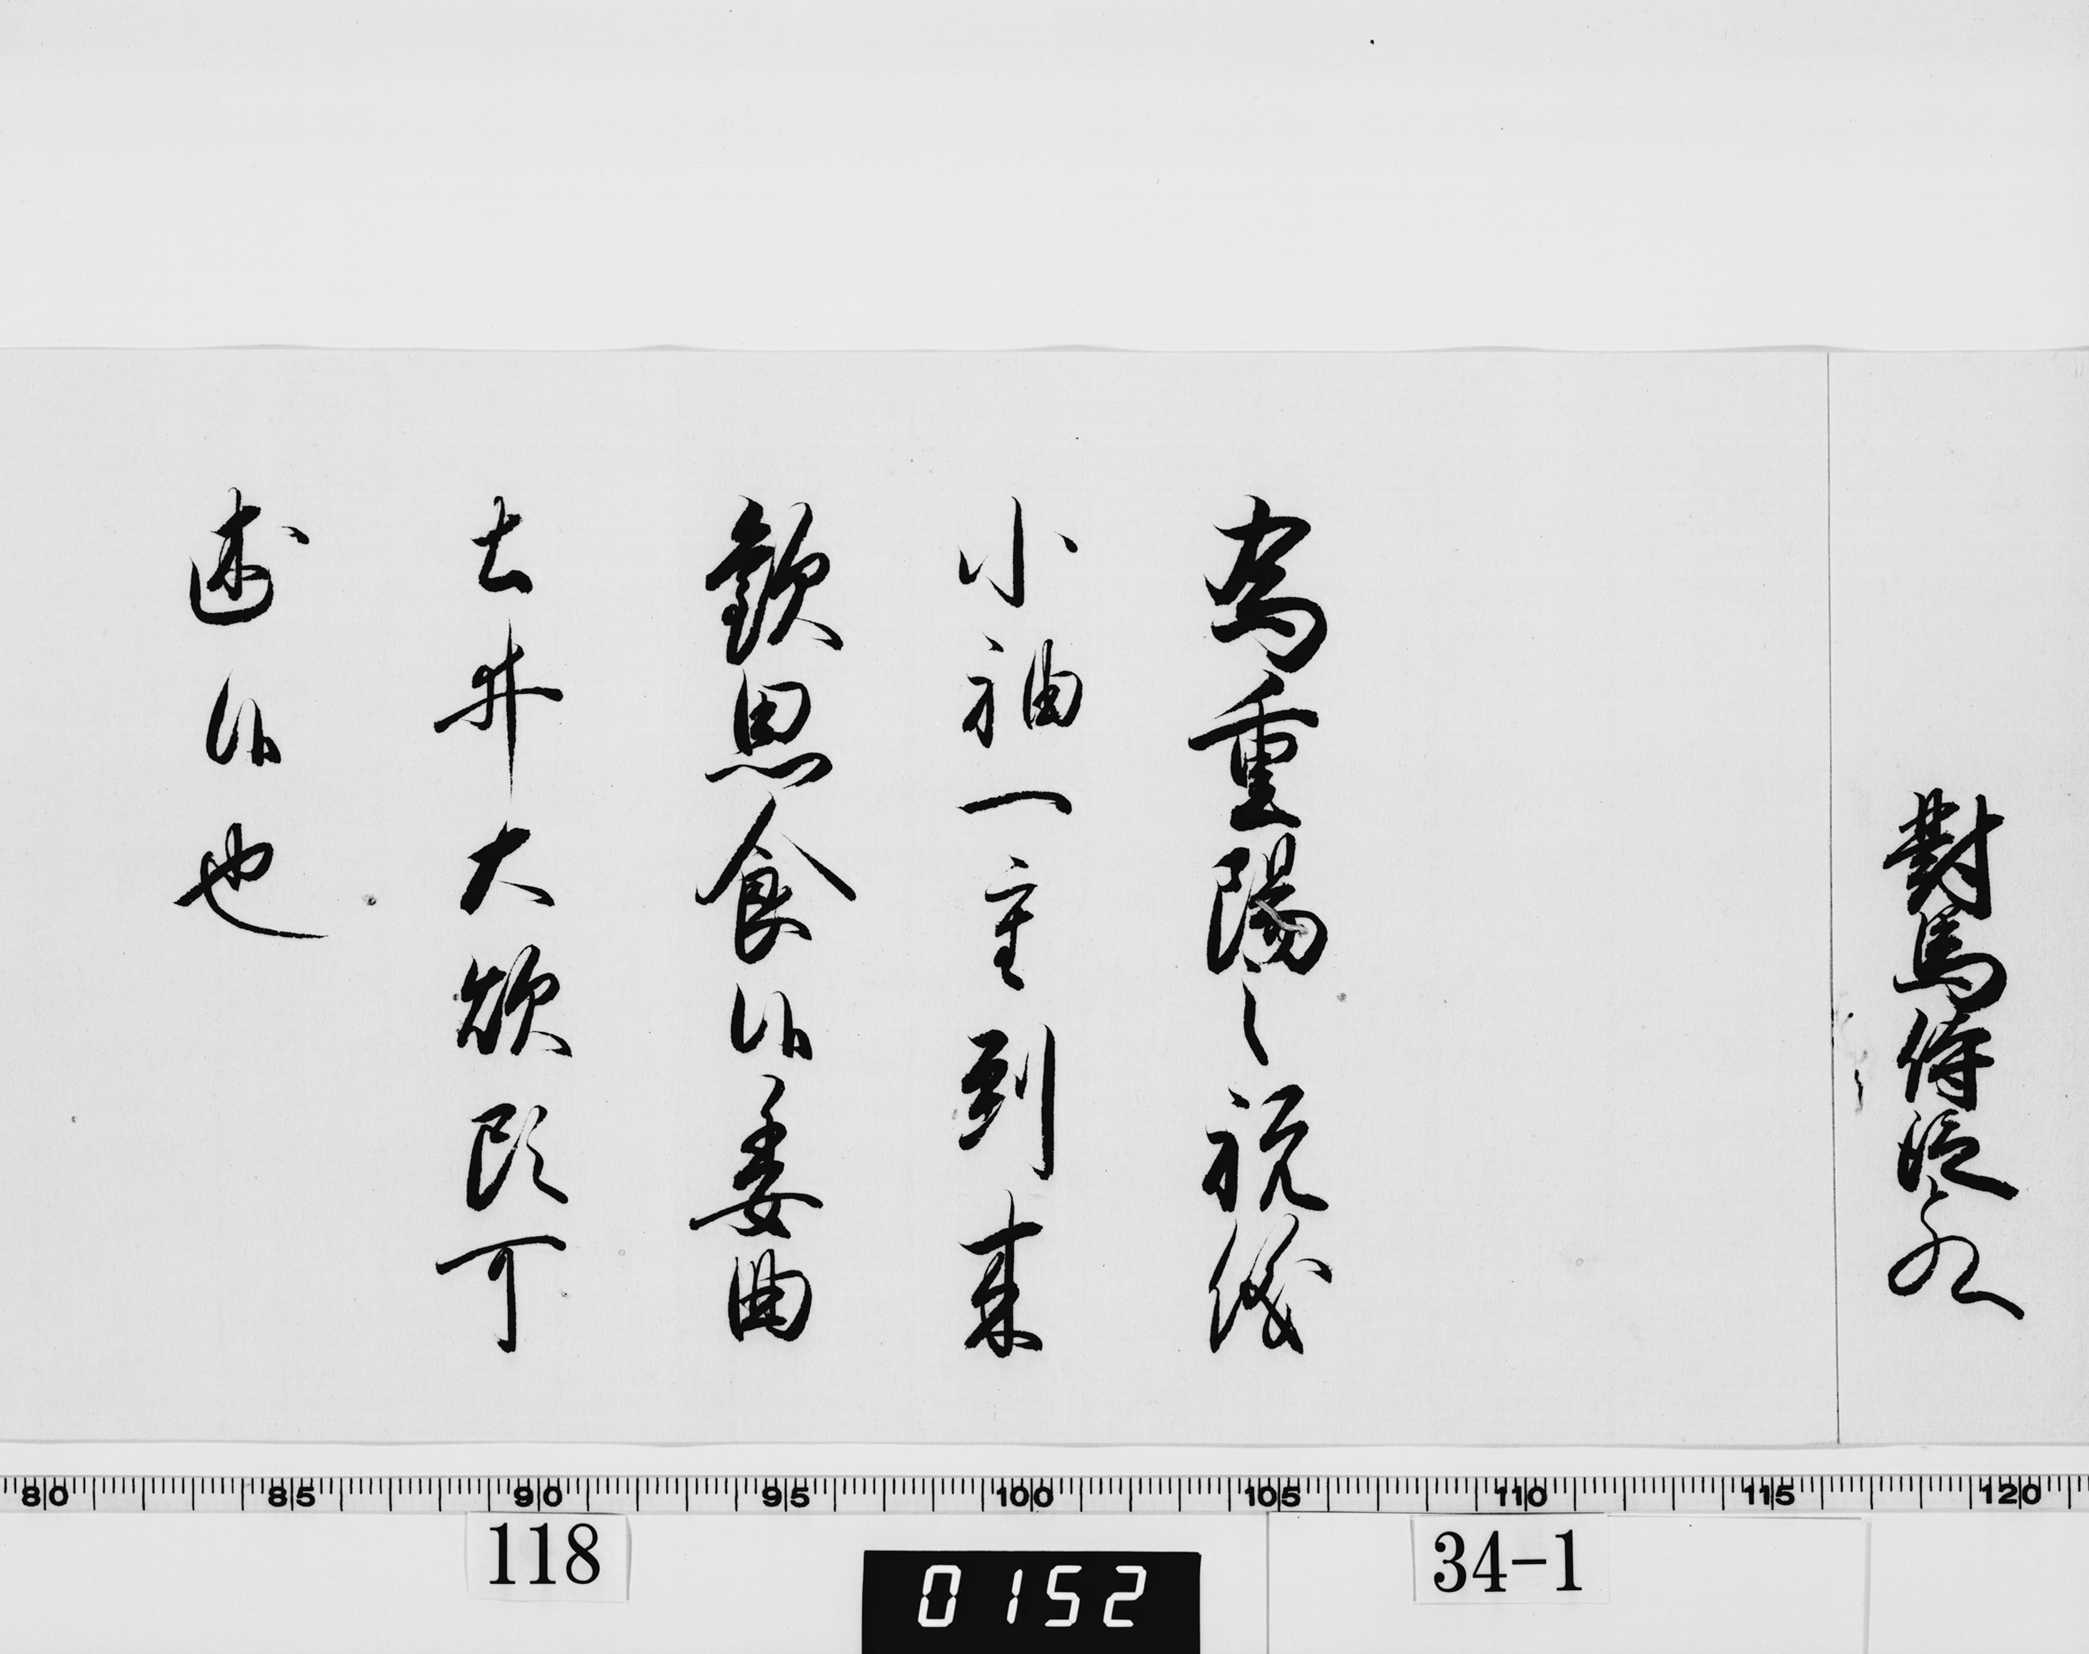 對馬侍従殿
為重陽之祝儀
小袖一重到来
歓思食候委曲
土井大炊頭可
述候也
80 85 90 95 100 105 110 115 120
118
0152
34-1